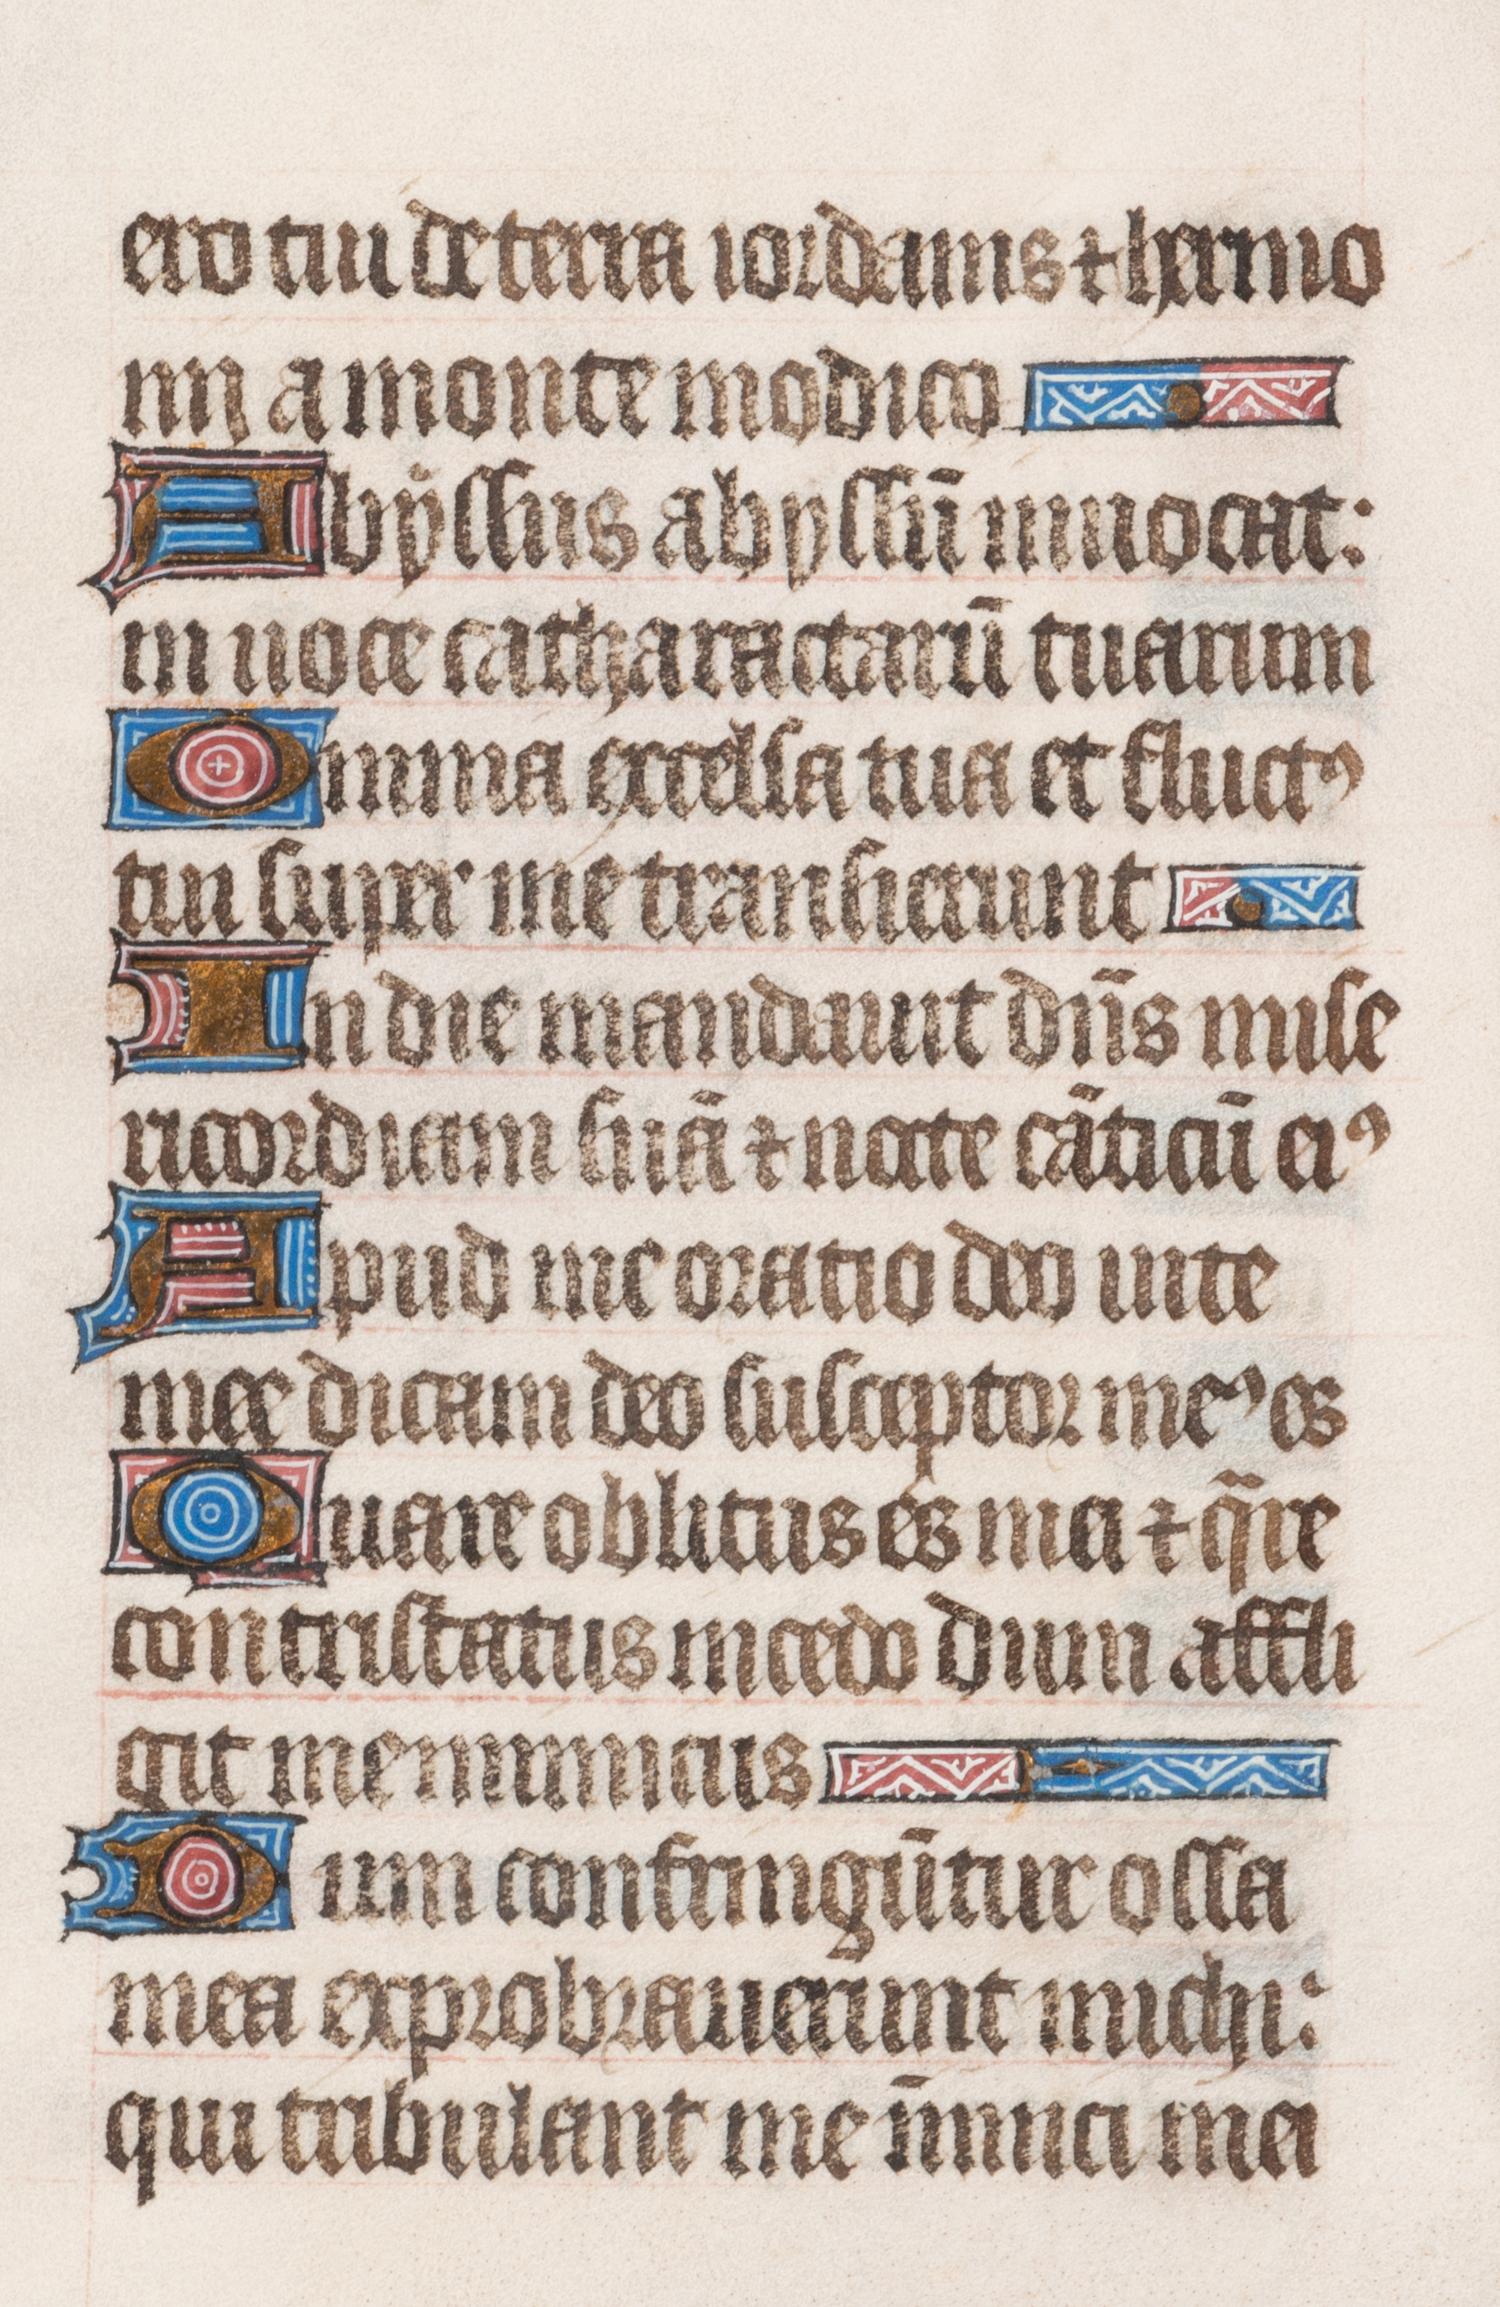 ero tui de terra iordanis ⁊ hermo
nii a monte modico
Abẏssus abyssū inuocat:
in uoce catharactarū tuarum
Omnia excelsa tua et fluctꝰ
tui super me transierunt
In die mandauit dn̄s mise
ricordiam suā ⁊ nocte cāticū eiꝰ
Apud me oratio deo uite
mee dicam deo susceptor meꝰ es
Quare oblitus es mei ⁊ q̄re
contristatus incedo dum affli
git me inimicus
Dum confringūtur ossa
mea exprobrauerunt michi:
qui tribulant me īimici mei